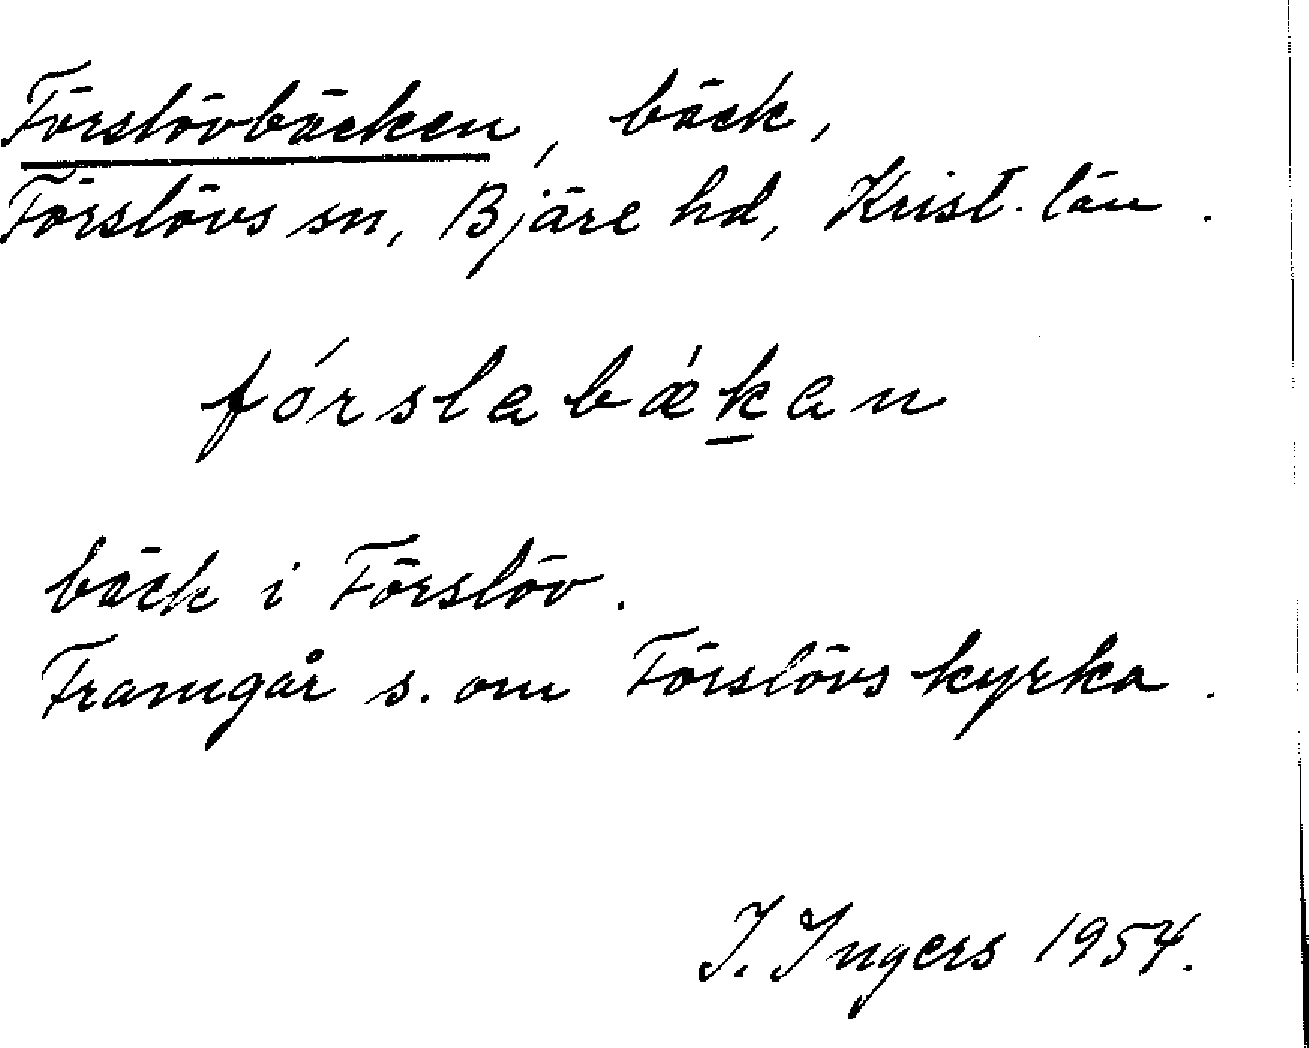 Förslövbäcken, bäck,
Förslövs sn, Bjäre hd, Krist. län.
fórslabǽḵan
bäck i Förslöv.
Framgår s. om Förslövs kyrka.
I. Ingers 1954.